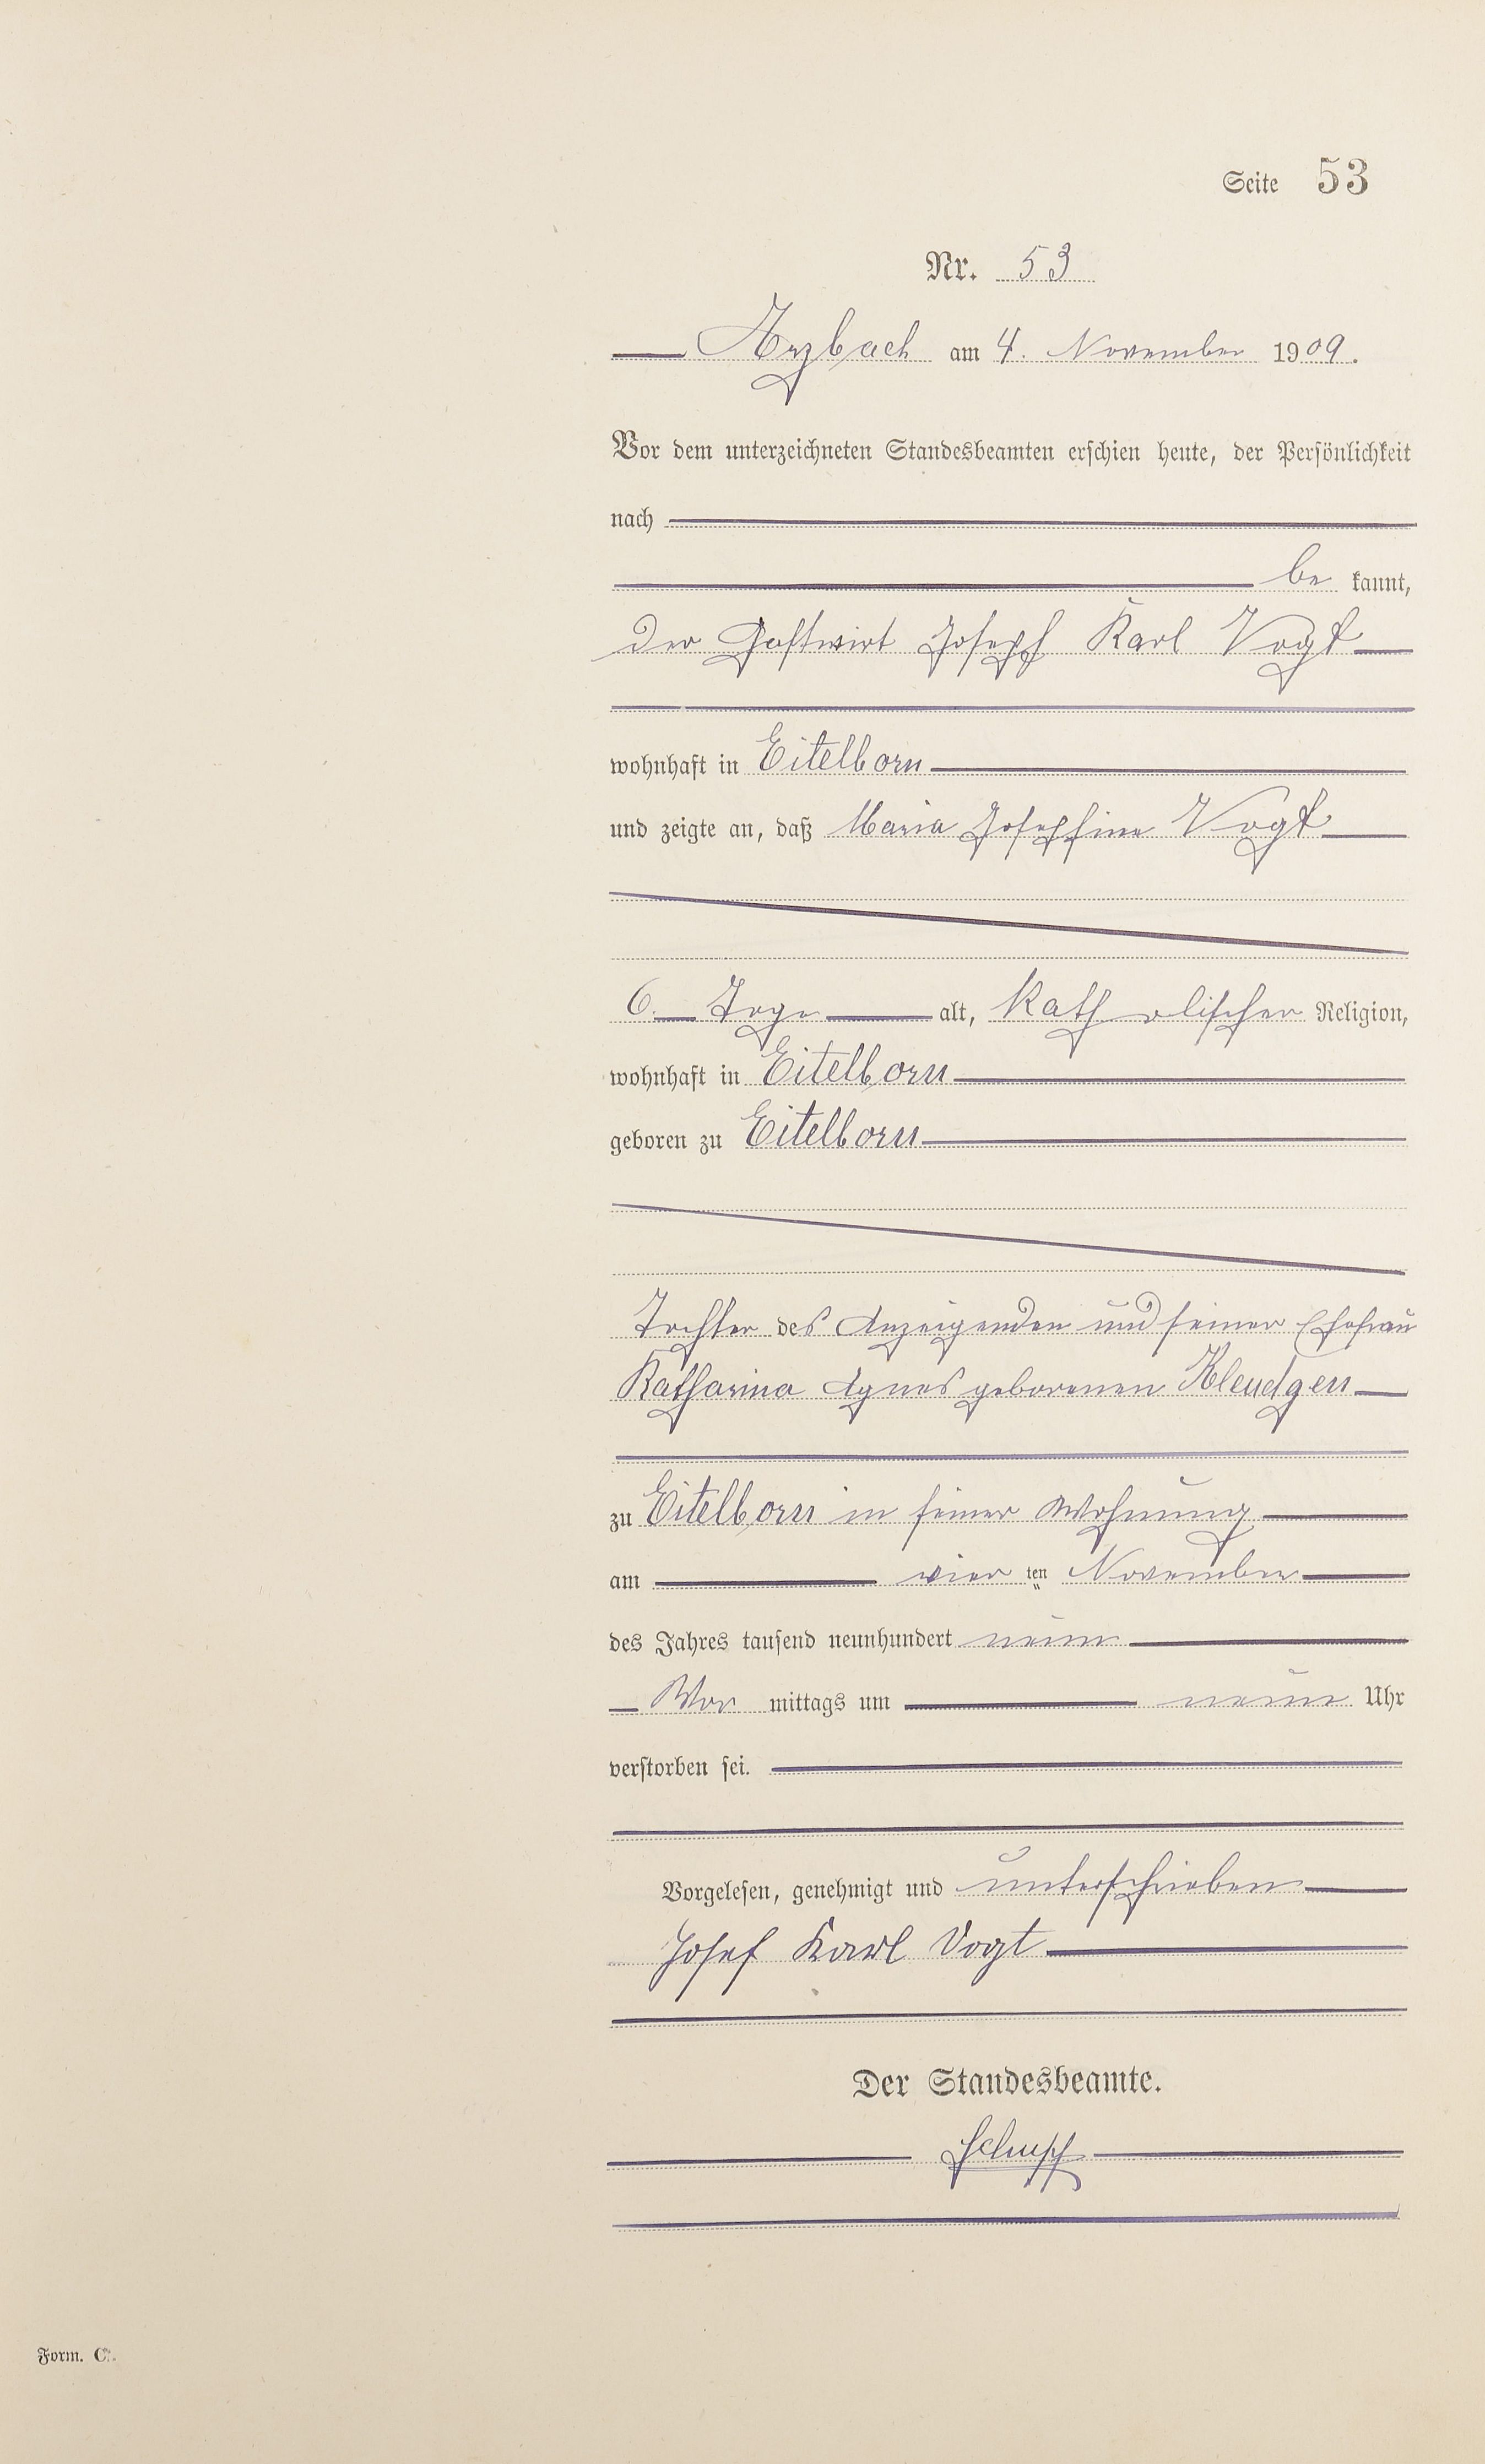 Seite 53
Nr. 53
Arzbach am 4. November 1909.
Vor dem unterzeichneten Standesbeamten erschien heute, der Persönlichkeit
nach
be kannt,
der Gastwirt Joseph Karl Vogt
wohnhaft in Eitelborn
und zeigte an, daß Maria Josephine Vogt
6. Tage alt, katholischer Religion,
wohnhaft in Eitelborn
geboren zu Eitelborn
Tochter des Anzeigenden und seiner Ehefrau
Katharina Agnes geborenen Kleudgen
zu Eitelborn in seiner Wohnung
am vier ten November
des Jahres tausend neunhundert neun
Vor mittags um neun Uhr
verstorben sei.
Vorgelesen, genehmigt und unterschrieben
Josef Karl Vogt
Der Standesbeamte.
Schupp
Form. C.